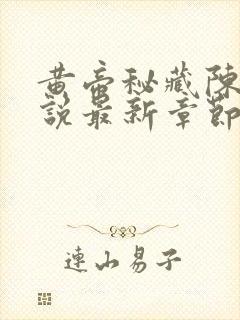 黄帝秘藏陳
說最新章節
連山易子